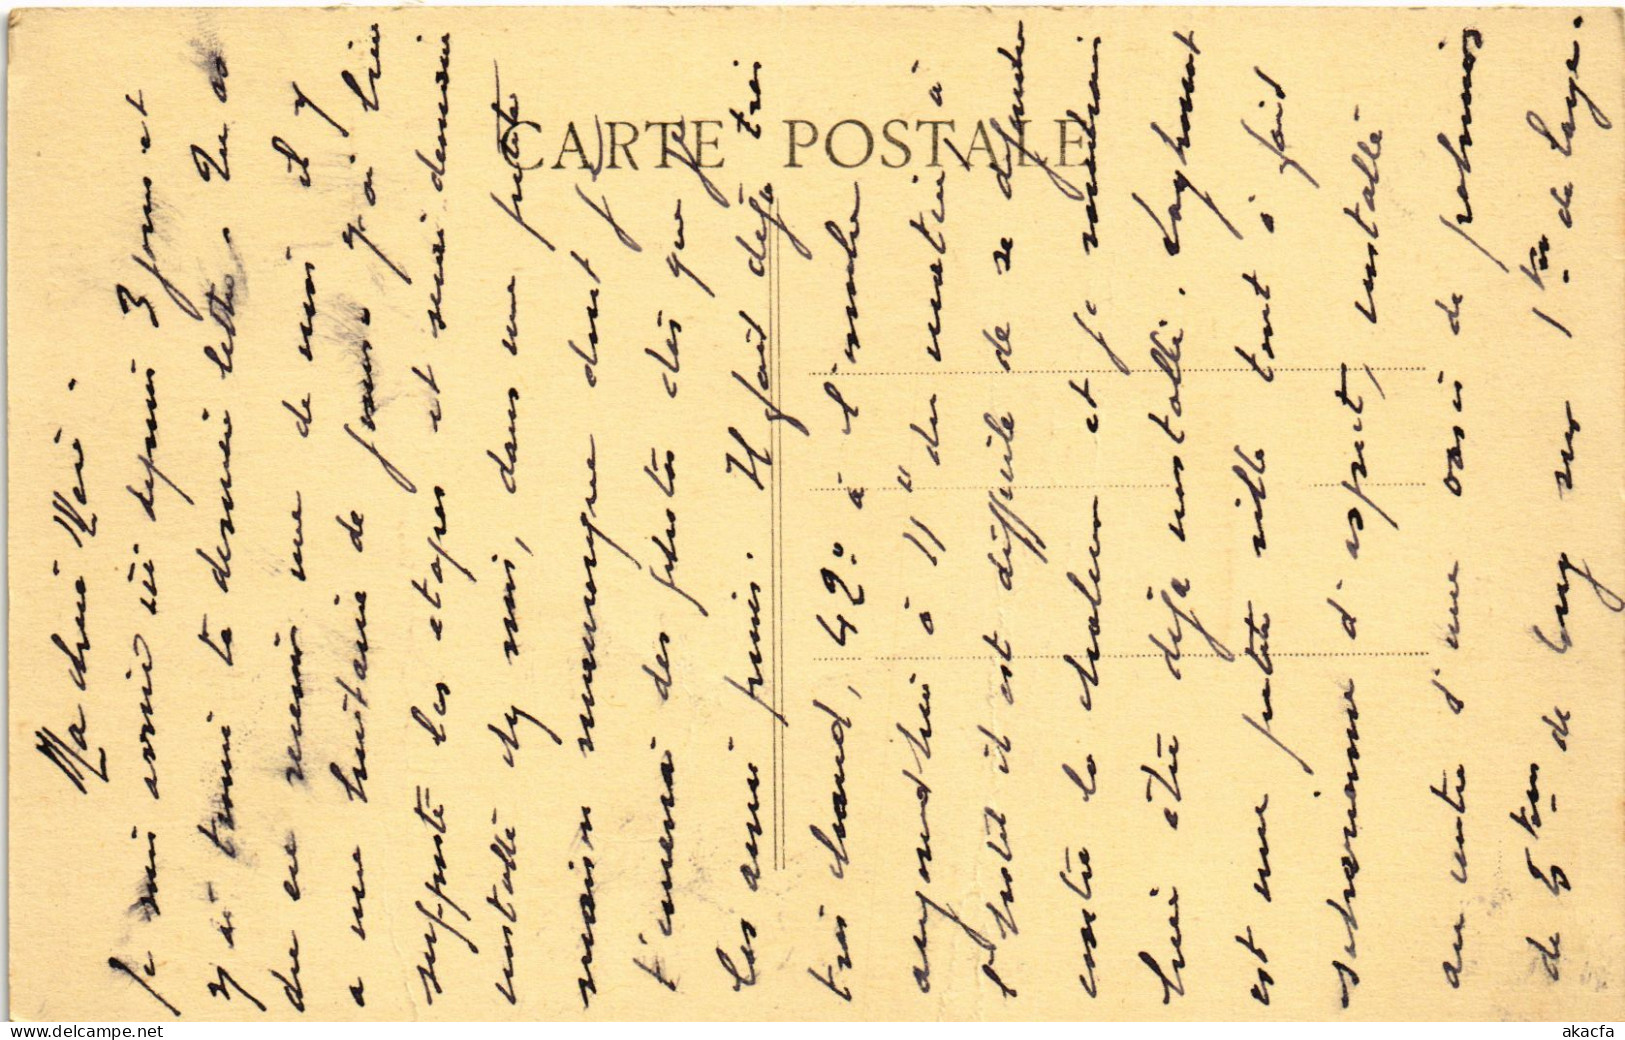 CARTE POSTALE
Ma chère Mère.
Je suis arrivé ici depuis 3 jours et
j'y ai trouvé ta dernière lettre. Tu as
dû en recevoir une de moi il y
a une huitaine de jours. J'ai bien
supporté les étapes et suis demain
installé chez moi, dans une petite
maison mauresque dont je
t'enverrai des photos dès que je
les aurai prises. Il fait déjà très
très chaud, 42° à l'ombre
aujourd'hui à 11 H du matin à
l'hôtel il est difficile de se défendre
contre la chaleur et je voudrais
bien être déjà installé. Laghouat
est une petite ville tout à fait
saharienne d'aspect, installée
au centre d'une oasis de palmiers
de 5 km de long sur 1 km de large.
akacfa.com
akacfa